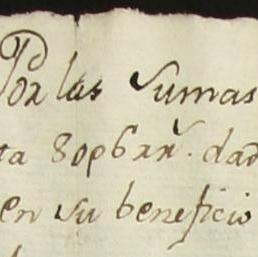 Por las sumas
ta 8096 rr.^s dad
en su beneficio